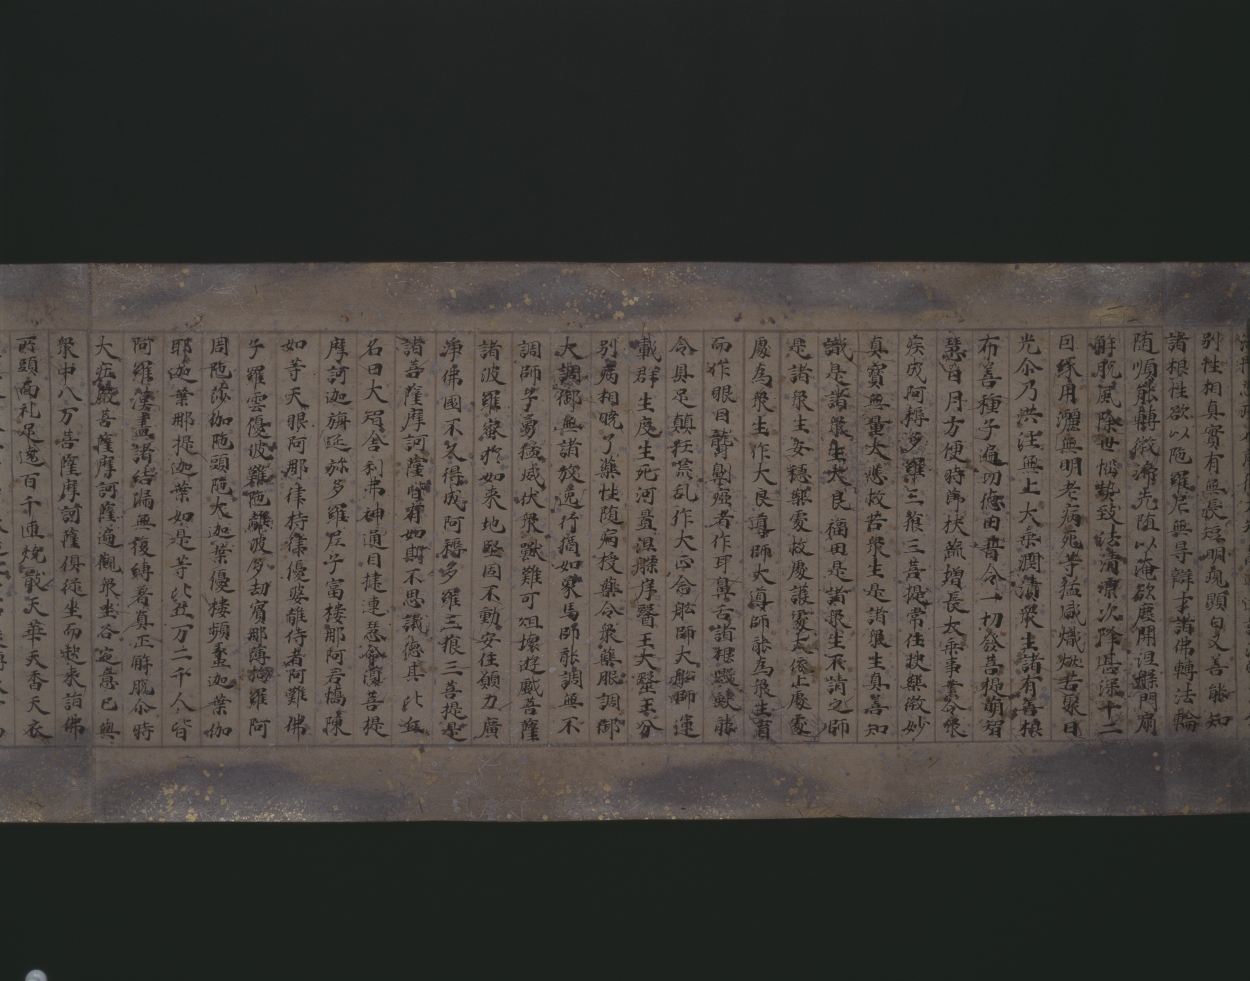 別性相真實有無長短明現顯白又善能知
諸根性欲以陁羅尼無㝵辯才諸佛轉法輪
随順能轉微渧先堕以淹欲塵開涅槃門扇
解脱風除世惱𤍠致法清涼次降甚深十二
因縁用灑無明老病死等猛盛熾燃苦聚日
光尒乃洪注無上大乗潤漬衆生諸有善根
布善種子遍功徳田普令一切發菩提萌智
慧日月方便時節扶疏増長大乗事業令衆
疾成阿耨多羅三藐三菩提常住快樂微妙
真實無量大悲救苦衆生是諸衆生真善知
識是諸衆生大良福田是諸衆生不請之師
是諸衆生安穏樂處救處護處大依止處處
處為衆生作大良導師大導師能為衆生盲
而作眼目聾劓瘂者作耳鼻舌諸根毀缺能
令具足顛狂荒乱作大正念舩師大舩師運
載群生度生死河置涅槃岸醫王大醫王分
別病相曉了藥性随病授藥令衆樂服調御
大調御無諸放逸行猶如象馬師能調無不
調師子勇猛威伏衆獸難可沮壞遊戯菩薩
諸波羅蜜於如来地堅固不動安住願力廣
淨佛國不久得成阿耨多羅三藐三菩提是
諸菩薩摩訶薩皆有如斯不思議徳其比丘
名曰大智舎利弗神通目揵連慧命湏菩提
摩訶迦旃延弥多羅尼子富樓那阿若憍陳
如等天眼阿那律持律優婆離侍者阿難佛
子羅雲優波難陁離波多劫賓那薄拘羅阿
周陁莎伽陁頭陁大迦葉優樓頻蠡迦葉伽
耶迦葉那提迦葉如是等比丘万二千人皆
阿羅漢盡諸結漏無復縛著真正解脱尒時
大莊嚴菩薩摩訶薩遍觀衆坐各定意已與
衆中八万菩薩摩訶薩俱從坐而起来詣佛
所頭面礼足遶百千匝焼散天華天香天衣